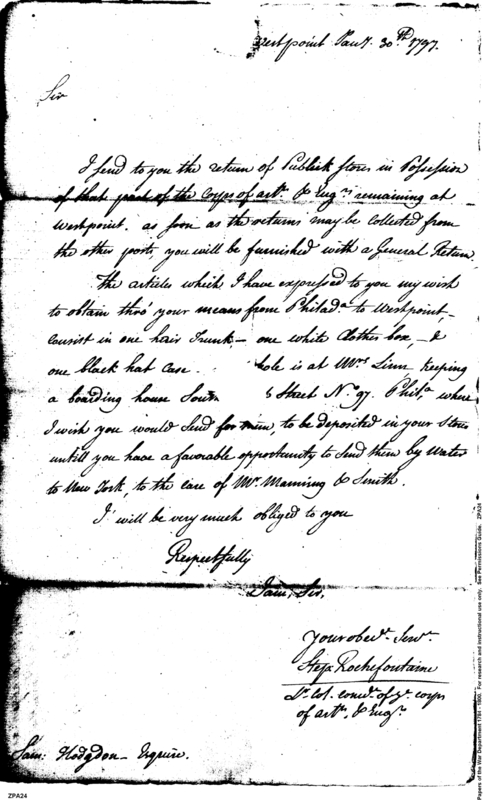 Westpoint Jany. 30th 1797.
Sir
I send to you the return of Publick stores in Possession
of that part of the Corps of arty. & Engrs remaining at
Westpoint. as soon as the returns may be collected from
the other posts, you will be furnished with a General Return.
The articles which I have expressed to you my wish
to obtain thro' your means from Philada. to Westpoint,
consist in one hair Trunk — one white Clothes box, &
one black hat case. is at Mrs Linn, keeping
a boarding house South Street No. 97. Phila. where
I wish you would send for them, to be deposited in your Stores
untill you have a favorable opportunity to send them by Water
to New York, to the care of Mr. Manning & Smith.
I will be very much obliged to you
Respectfully
I am, Sir,
your obedt. Servt.
Step. Rochefontaine
Lt. Col. comdt. of ye. corps
of arty. & Engrs.
Sam: Hodgdon — Esquire.
ZPA24
Papers of the War Department 1784 - 1800. For research and instructional use only. See Permissions Guide. ZPA24